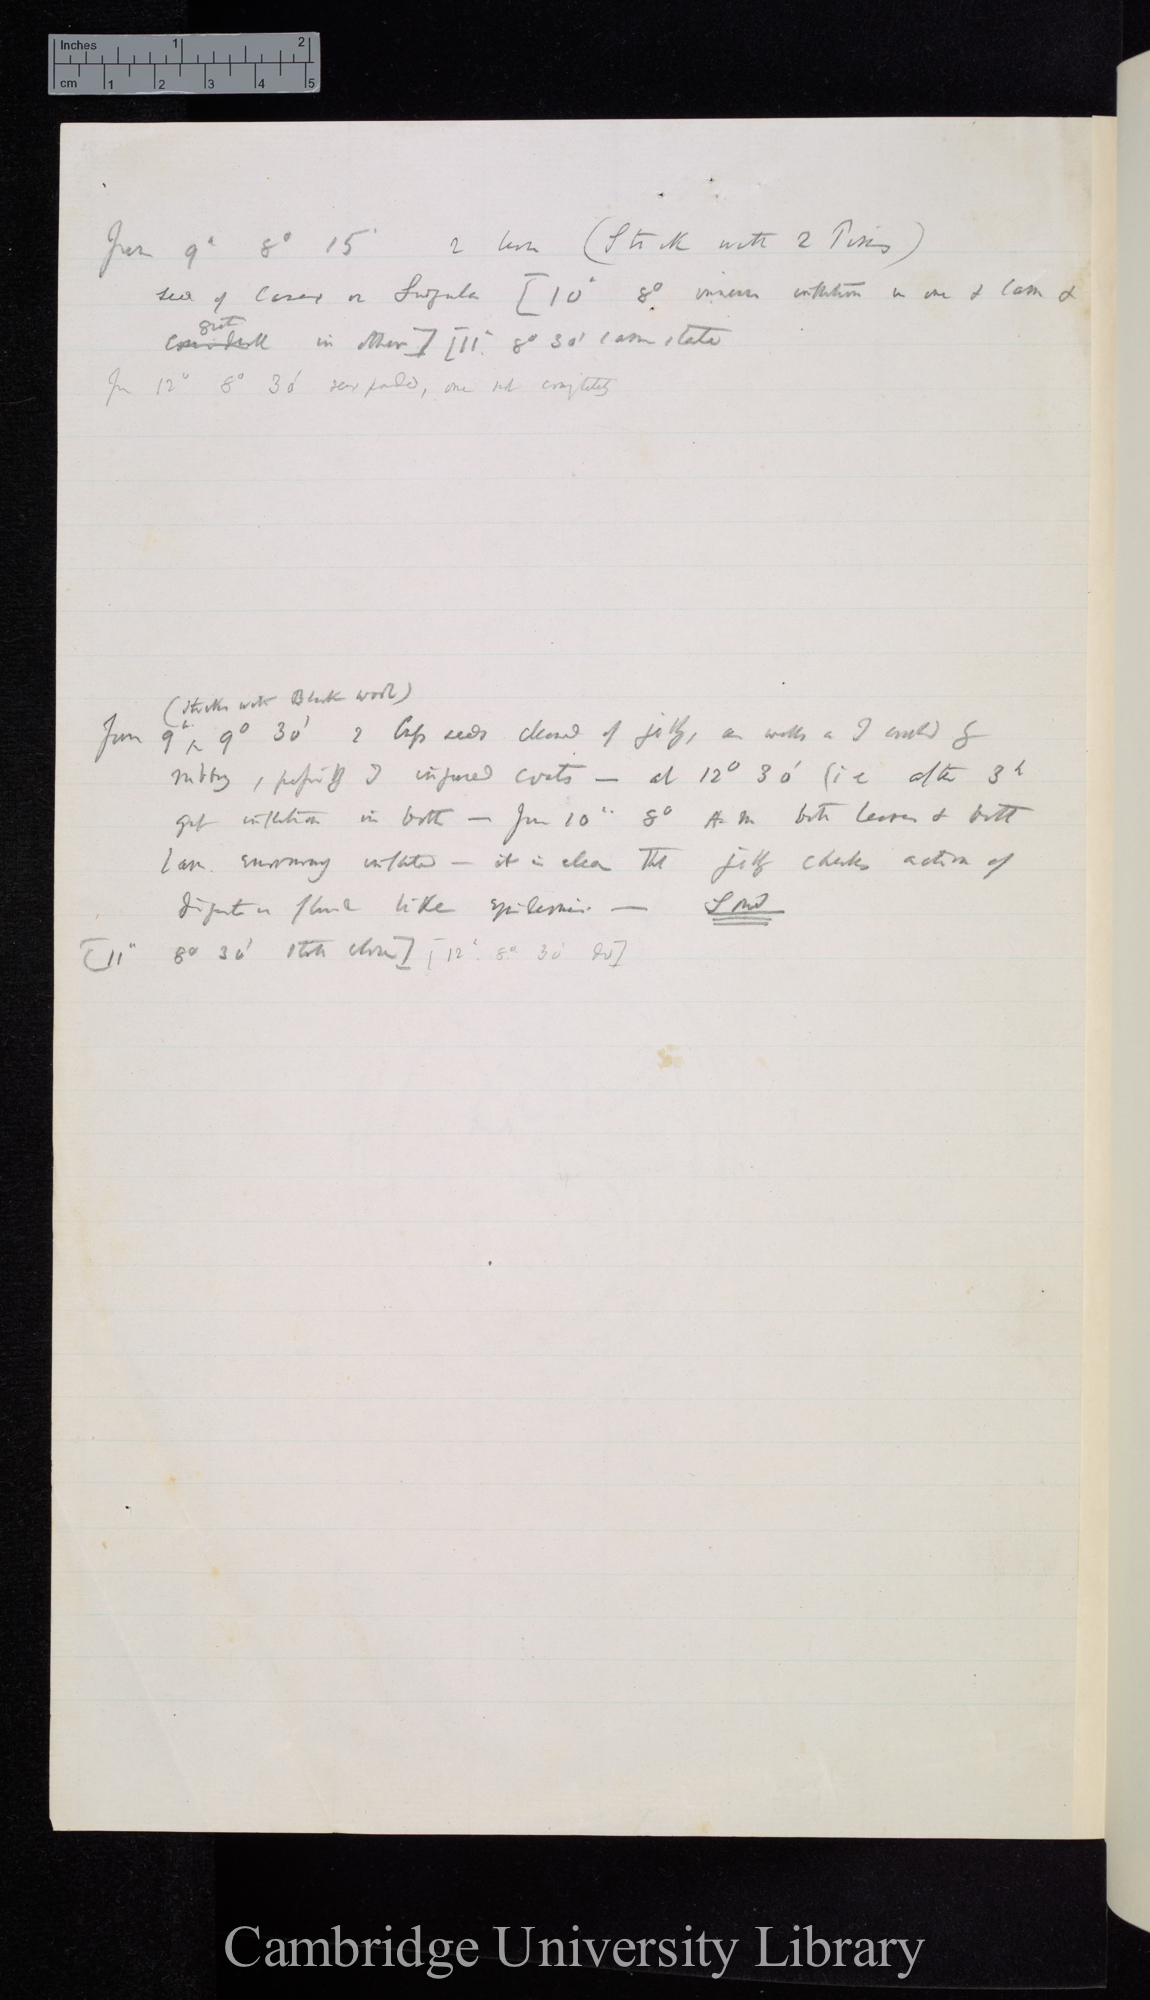 Inches 1 2
cm 1 2 3 4 5
June 9th 8° 15' 2 (Stick with 2 Pins)
seed of Carex or [10th 8° inflection in one & lam &
great
in other] [11th 8° 30' same state
Jun 12th 8° 30' one not completely
(Sticks with Black wool)
June 9th ^ 9° 30' 2 seeds cleaned of jelly, as well as I could by
rubbing, I injured coats — at 12° 30' (ie after 3h
gt inflection in both — Jun 10th 8° A.m both leaves & both
lam. inflected — it is clear that jelly checks action of
digestive fluid like epidermis —
[11th 8° 30' still close] [12th. 8° 30' do]
Cambridge University Library